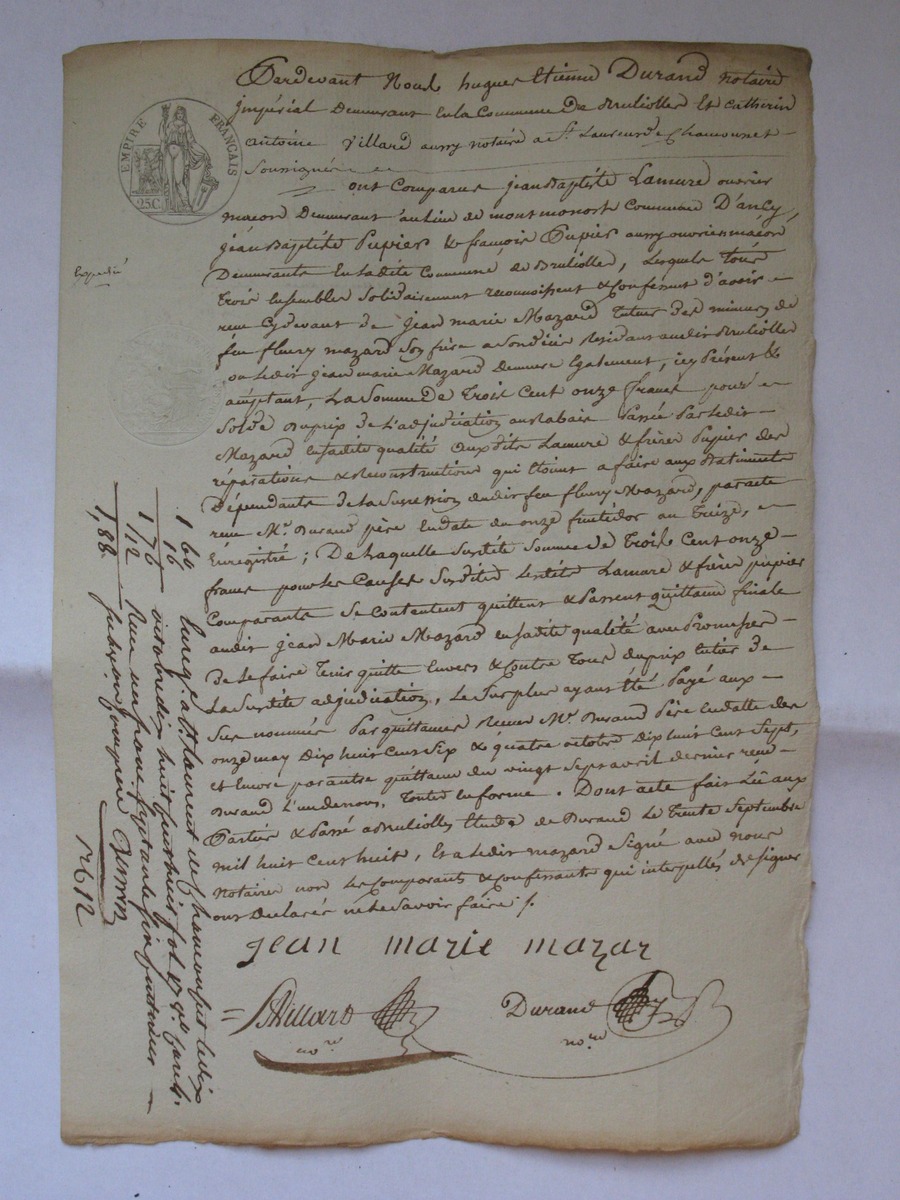 EMPIRE FRANÇAIS
25C.
Pardevant Nous hugues Etienne Durand notaire
impérial Demeurant En la Commune de Brullioles Et Catherin
antoine Villard aussy notaire a St. Laurent de Chamousset
Soussignés
ont Comparus jean Baptiste Lamure ouvrier
macon Demeurant au lieu de montmonost Commune D'ancy,
jean Baptiste Pupier & françois Pupier aussy ouvriers macon
Demeurants En la dite Commune de Brullioles, Lesquels tous
trois Ensembles Solidairement reconnoissent & Confessent d'avoir
reçu Cydevant de jean marie Mazard Tuteur des mineurs de
feu fleury mazard Son frère a Son décès Résidant audit Brullioles
ou Ledit jean marie Mazard demeure Egalement, icy Présent &
acceptant, La Somme de Trois Cent onze francs pour
Solde du prix de L'adjudication au Rabais Passée Par Ledit
Mazard En Sa dite qualité auxdits Lamure & frères Pupier des
réparations & Reconstructions qui Etoient a faire aux Batiments
Dépendants de la Succession dudit feu fleury Mazard, par acte
reçu Me. Durand père En date du onze fructidor an Treize,
Enregistré; De Laquelle Susdite Somme de Trois Cent onze
francs pour les Causes Susdites Lesdits Lamure & frères pupier
Comparants Se Contentent quittent & Passent quittance finale
audit jean Marie Mazard En Sa dite qualité avec Promesse
De le faire Tenir quitte Envers & Contre Tous du prix Entier de
La Susdite adjudication, Le Surplus ayant Eté Payé aux
Sus nommés Par quittances Recues Me. Durand Père En datte des
onze may Dix huit Cent Six & quatre octobre Dix huit Cent Sept,
et Encore par autre quittance du vingt Sept avril dernier reçue
Durand L'un de nous, Toutes En forme. Dont acte fait Lû aux
Parties & Passé a Brullioles Etude de Durand Le Trente Septembre
mil huit Cent huit, Et a Ledit mazard Signé avec nous
Notaires non Les Comparants & Confessants qui interpellés de Signer
ont Déclarés ne le Savoir faire ./.
jean marie mazar
Villard
no.re
Durand
no.re
1 60
16
1 76
1/12
1,88
Enreg. a St. Laurent de Chamousset le dix
octobre dix huit cent huit fol. 47
Reçu un franc Soixante Seize centimes
12612